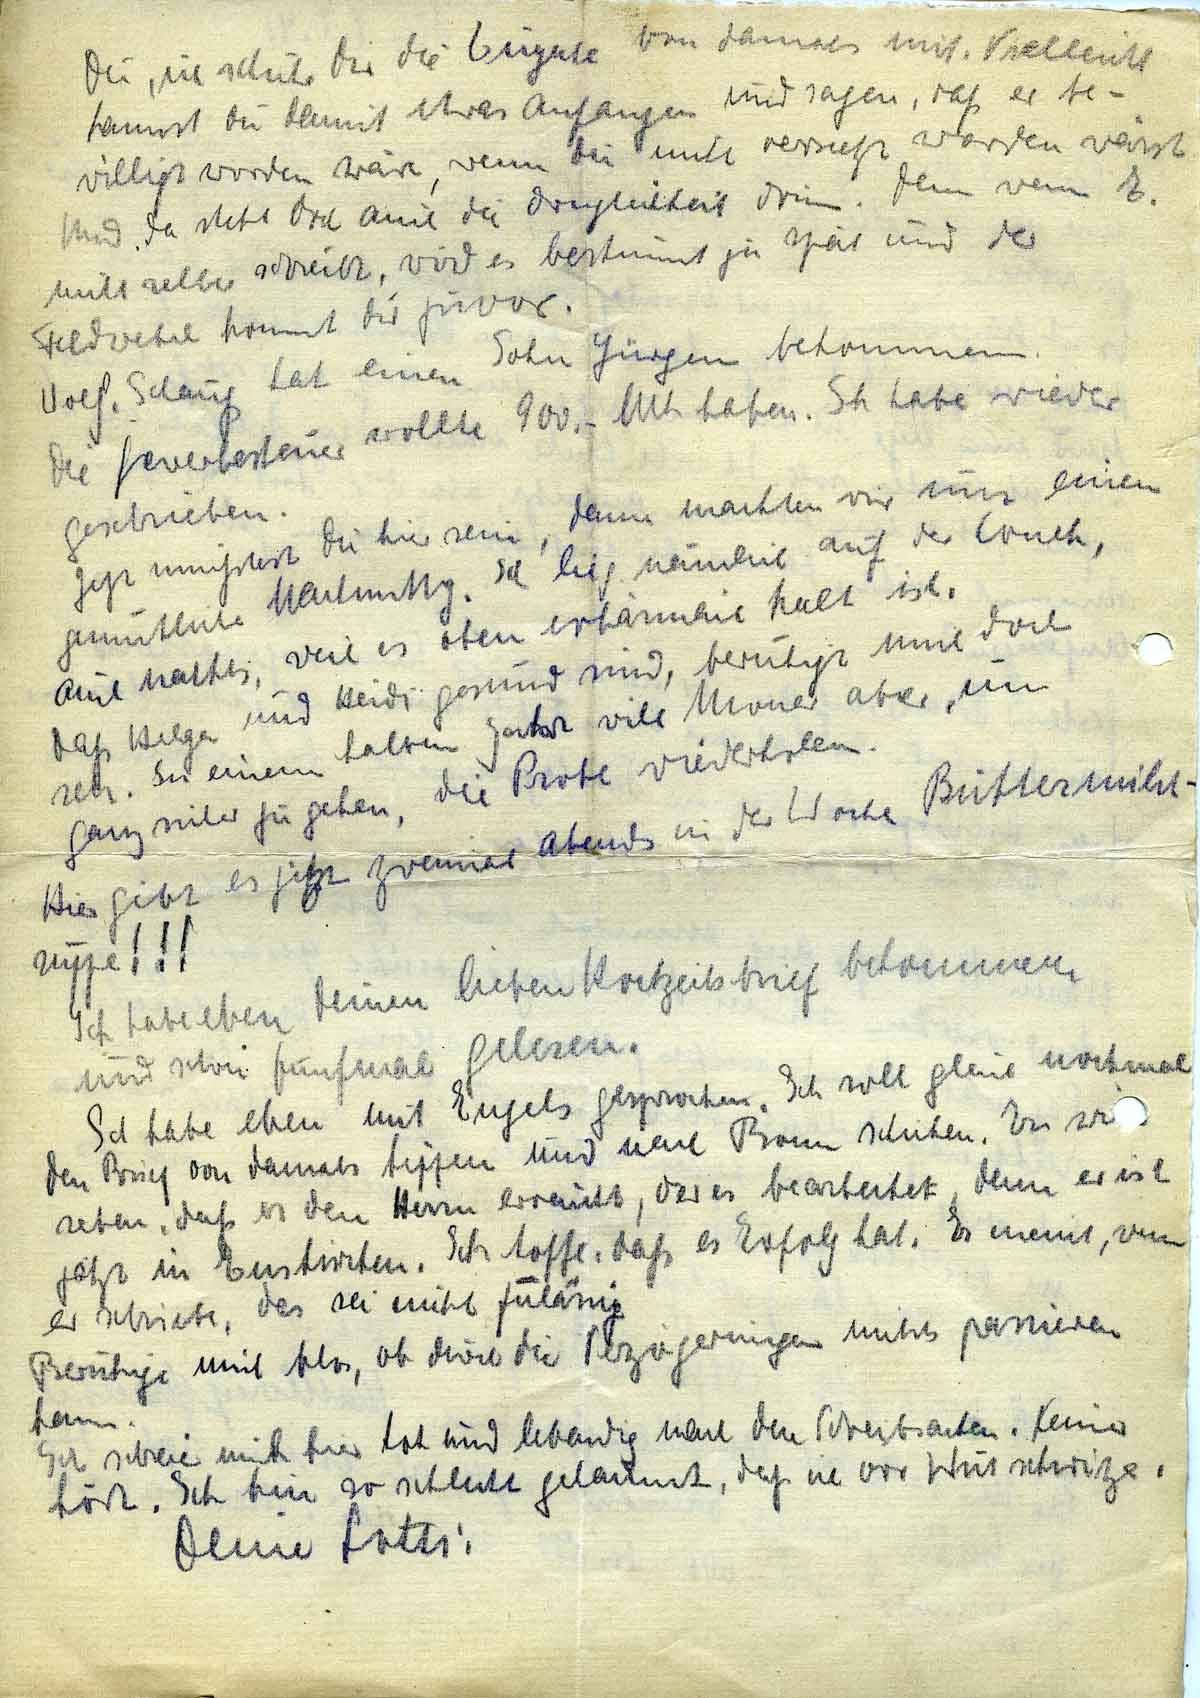 Du, ich schicke Dir die Eingabe von damals mit. Vielleicht
kannst du damit etwas Anfangen und sagen, daß er be-
willigt worden wäre, wenn du nicht versetzt worden wärst.
Und da steht doch auch die Dringlichkeit drin. Denn wenn E.
nicht selber schreibt, wird es bestimmt zu spät und der
Feldwebel kommt dir zuvor.
Wolf. Schaug hat einen Sohn Jürgen bekommen.
Die Gewerbesteuer wollte 900.- Mk haben. Ich habe wieder
geschrieben.
Jetzt müsstest Du hier sein, dann machten wir uns einen
gemütlichen Nachmittg. Ich lieg nämlich auf der Couch,
auch nachts, weil es oben erbärmlich kalt ist.
Daß Helga und Heidi gesund sind, beruhigt mich doch
sehr. In einem halben Jahr will Moner aber, um
ganz sicher zu gehen, die Probe wiederholen.
Hier gibt es jetzt zweimal Abends in der Woche Buttermilch-
suppe!!!
Ich habe eben deinen lieben Hochzeitsbrief bekommen
und schon fünfmal gelesen.
Ich habe eben mit Engels gesprochen. Ich soll gleich nochmal
den Brief von damals tippen und nach Bonn schicken. Er will
sehen, daß er den Herrn erreicht, der es bearbeitet, denn er ist
jetzt in Euskirchen. Ich hoffe, daß es Erfolg hat. Er meint, wenn
er schriebe, das sei nicht zulässig
Beruhige mich blos, ob durch die Verzögerungen nichts passieren
kann.
Ich schreie mich hier tot und lebandig nach den Schreibsachen. Keiner
hört. Ich bin so schlecht gelaunt, daß ich vor Wut schwitze.
Deine Lotti.